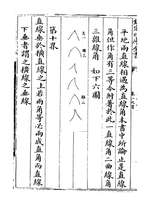 平地兩直線相遇為直線角本書中所論止是直線
角但作角有三等今附著於此一直線角二曲線角
三雜線角 如下六圖
第十界
直線垂於橫直線之上若兩角等必兩成直角而直線
下垂者謂之橫線之垂線